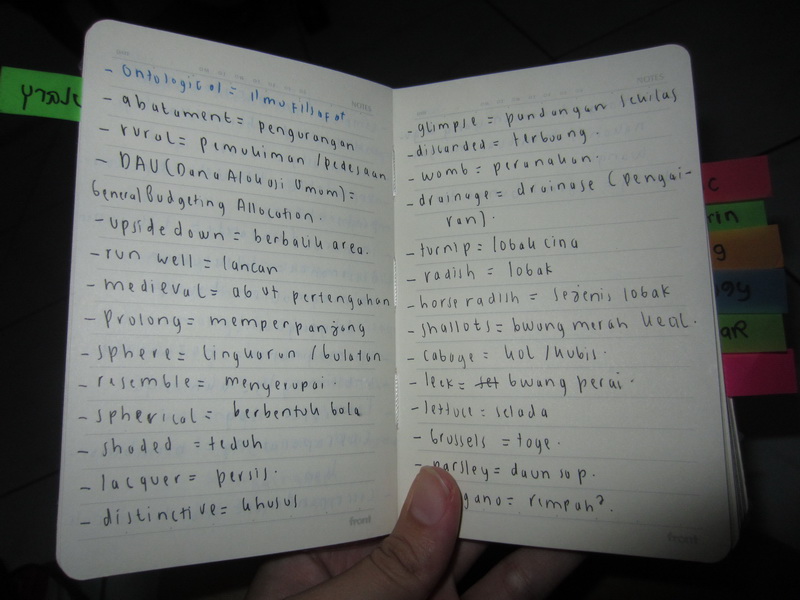 NOTES
- Ontological = ilmu filsafat
- abatument = pengurangan
- rural = pemukiman / pedesaan
- DAU (Dana Alokasi Umum) =
General Budgeting Allocation.
- upside down = berbalik area.
- run well = lancar
- medieval = abat pertengahan
- prolong = memperpanjang
- sphere = lingkaran / bulatan
- resemble = menyerupai.
- spherical = berbentuk bola
- shaded = teduh
- lacquer = persis.
- distinctive = khusus
front
NOTES
- glimpse = pandangan sekilas
- discarded = terbuang.
- womb = peranakan.
- drainage = drainase (pengai-
ran).
- turnip = lobak cina
- radish = lobak
- horse radish = sejenis lobak
- shallots = bwung merah kecil.
- cabage = kol / kubis.
- leek = bwang perai.
- lettuce = selada
- Brussels = toge.
- parsley = daun sop.
gano = rempah2.
front